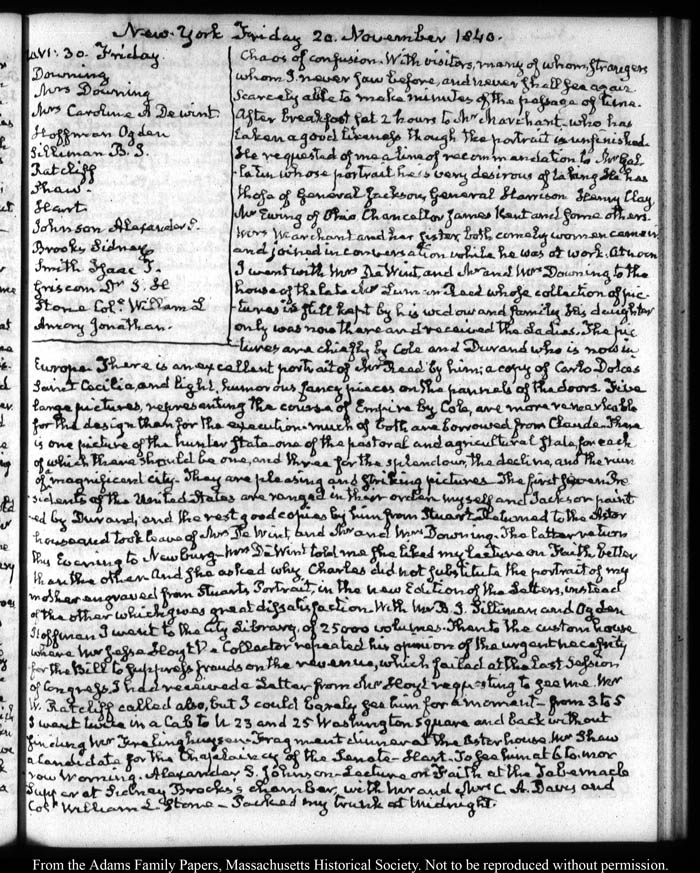 New-York Friday 20. November 1840.
XVI: 30. Friday.
Downing
Mrs Downing
Mrs Caroline A Dewint.
Hoffman Ogden
Silliman B. I.
Ratcliff
Shaw.
Hart
Johnson Alexander S.
Brooks Sidney
Smith Isaac T.
Griscom Dr. J. H
Stone Colo. William L
Amory Jonathan.
Chaos of confusion. With visitors, many of whom, strangers
whom I never saw before, and never shall see again
Scarcely able to make minutes of the passage of time.
After breakfast sat 2 hours to Mr Marchant who has
taken a good likeness though the portrait is unfinished.
He requested of me a line of recommendation to Mr Gal-
latin whose portrait he is very desirous of taking. He has
those of General Jackson, General Harrison Henry Clay
Mr Ewing of Ohio Chancellor James Kent and some others.
Mrs Marchant and her sister both comely women came in
and joined in conversation while he was at work. At noon
I went with Mrs De Wint, and Mr and Mrs Downing to the
house of the late Mr Lumen Reed whose collection of pic-
tures is still kept by his widow and family his daughter
only was now there and received the Ladies. The pic
tures are chiefly by Cole and Durand who is now in
Europe. There is an excellent portrait of Mr Reed by him; a copy of Carlo Dolces
Saint Cecilia, and light, humorous fancy pieces on the pannels of the doors. Five
large pictures, representing the course of Empire by Cole, are more remarkable
for the design than for the execution. much of both are borrowed from Claude. There
is one picture of the hunter State-one of the pastoral and agricultural State, for each
of which there should be one, and three for the splendour, the decline, and the ruin
of a magnificent city. They are pleasing and striking pictures. The first seven Pre
sidents of the United States are ranged in their order, myself and Jackson paint
-ed by Durand, and the rest good copies by him from Stuart. I returned to the Astor
house and took leave of Mrs De Wint, and Mr and Mrs Downing. The latter return
this Evening to Newburg- Mrs De Wint told me she liked my lecture on Faith better
than the other. And she asked why Charles did not substitute the portrait of my
mother engraved from Stuarts Portrait, in the new Edition of the Letters, instead
of the other which gives great dissatisfaction. With Mr B. I. Silliman and Ogden
Hoffman I went to the City Library, of 25000 volumes. Then to the custom house
where Mr Jesse Hoyt the Collector repeated his opinion of the urgent necessity
for the Bill to suppress frauds on the revenue, which failed at the Last Session
of Congress. I had received a Letter from Mr Hoyt requesting to see me. Mr
W. Ratcliff called also, but I could barely see him for a moment- from 3 to 5
I went twice in a Cab to N. 23 and 25 Washington Square and back without
finding Mr Frelinghuysen- Fragment dinner at the Astor house. Mr Shaw
a candidate for the Chaplaincy of the Senate- Hart. To see him at 6 to mor
row Morning. Alexander S. Johnson- Lecture on Faith at the Tabernacle
Supper at Sidney Brooks's chamber, with Mr and Mrs C. A. Davis and
Colo. William L Stone- Packed my trunk at Midnight.
From the Adams Family Papers, Massachusetts Historical Society. Not to be reproduced without permission.